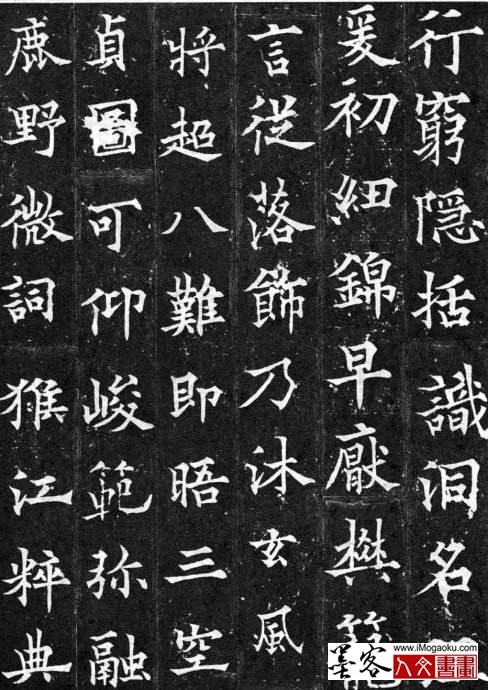 行窮隱括識洞名
爰初紐錦早厭樊籠
言從落飾乃沐玄風
将超八難即晤三空
貞圖可仰峻範弥融
鹿野微詞猴江粹典
墨客
www.iMogaoku.com
人文書畫